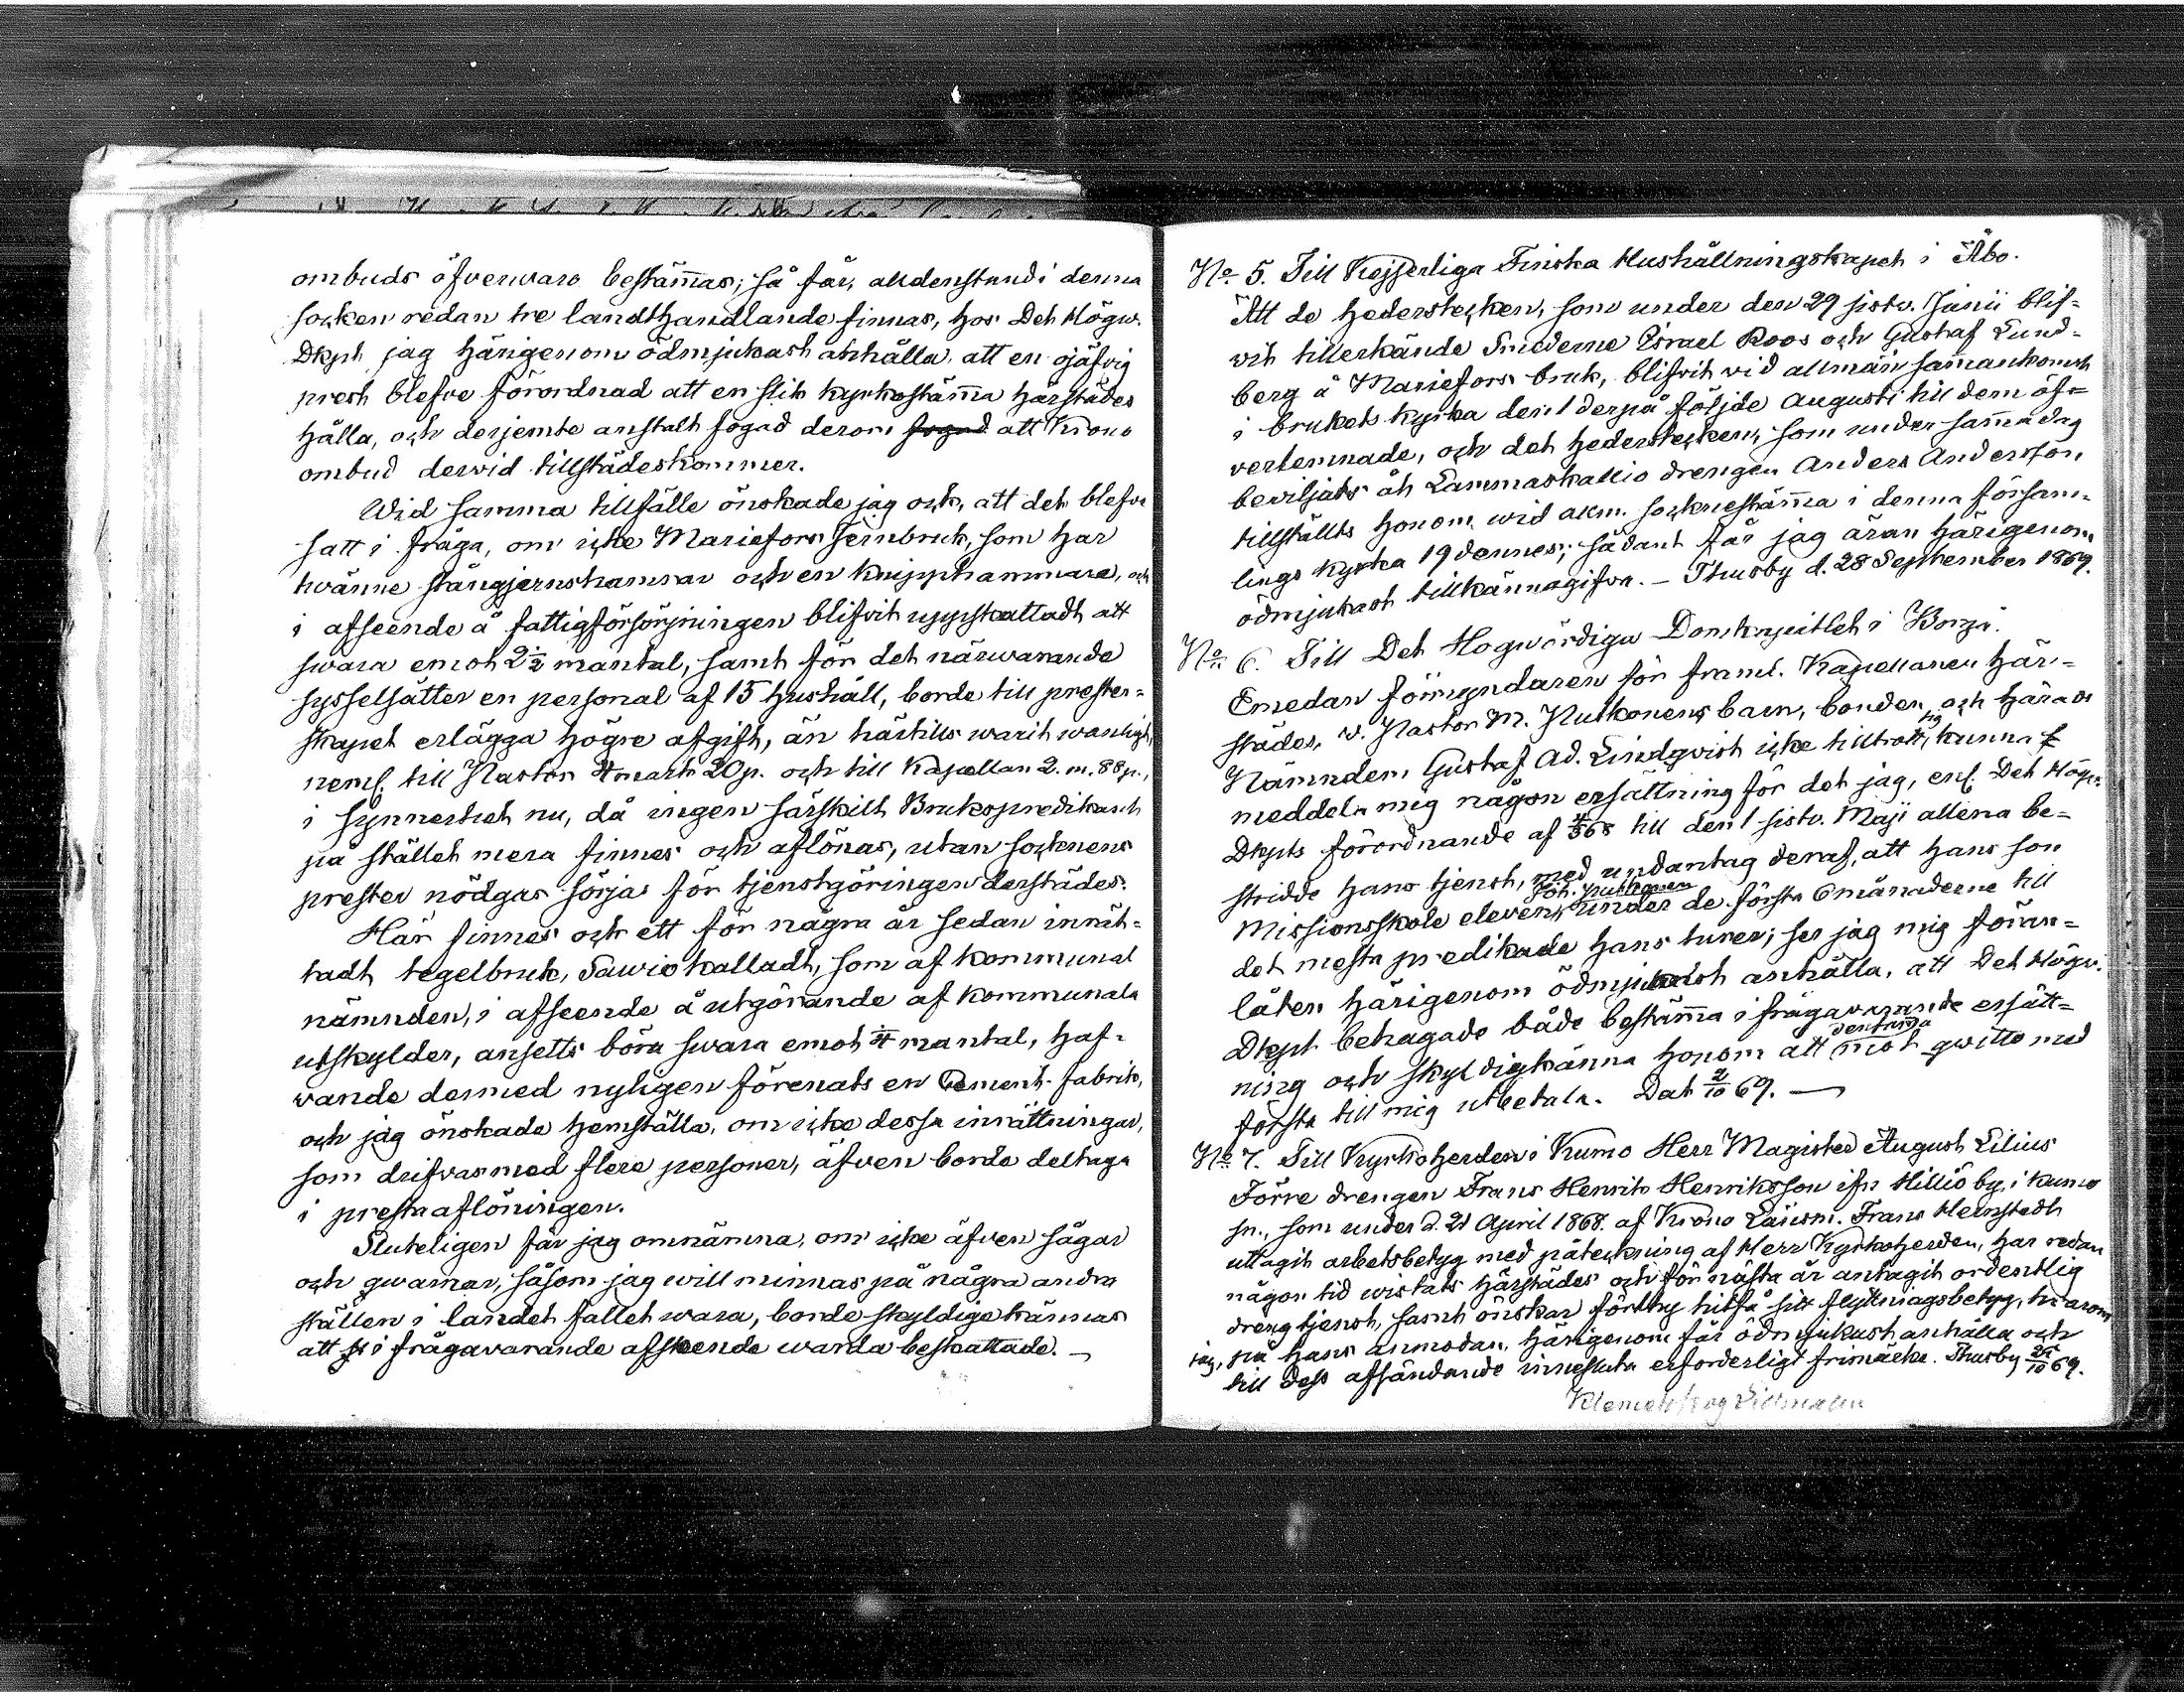 ombuds öfverwaro bestämmas; så får, alldenstund i denna
socken redan tre landthandlande finnas, hos Det Högw.
Dkpit jag härigenom ödmjukast anhålla, att en ojäfvig
prest blefve förordnad att en slik kyrkostämma härstädes
hålla, och derjemte anstalt fogad derom fogad att Krono
ombud dervid tillstädeskommer.
Wid samma tillfälle önskade jag ock, att det blefve
satt i fråga, om icke Mariefors jernbruk, som har
twänne stångjernshamrar och en knipphammare, och
i afseende å fattigförsörjningen blifvit uppskattadt att
swara emot 2½ mantal, samt för det närwarande
sysselsätter en personal af 15 hushåll, borde till prester=
skapet erlägga högre afgift, än härtills warit wanligt,
neml. till Pastor 4 mark 20 p. och till Kapellan 2. m. 88 p.,
i synnerhet nu, då ingen särskilt Brukspredikant
på stället mera finnes och aflönas, utan socknens
prester nödgas sörja för tjenstgöringen derstädes.
Här finnes ock ett för några år sedan inrät=
tadt tegelbruk, Sawio kalladt, som af kommunal
nämnden, i afseende å utgörande af kommunala
utskylder, ansetts böra swara emot ¼ mantal, haf=
vande dermed nyligen förenats en Cement-fabrik,
och jag önskade hemställa, om icke dessa inrättningar,
som drifvas med flere personer, äfven borde deltaga
i prestaflöningen.
Sluteligen får jag omnämna, om icke äfven sågar
och qwarnar, såsom jag will minnas på några andra
ställen i landet fallet wara, borde skyldige kännas
att i frågavarande afseende warda beskattade. –
No 5. Till Kejserliga Finska Hushållningskapet i Åbo.
Att de hederstecken, som under den 29 sistv. Junii blif=
vit tillerkände Smederne Israel Roos och Gustaf Lund=
berg å Mariefors bruk, blifvit vid allmän sammankomst
i brukets kyrka den 1 derpå följde Augusti till dem öf=
verlemnade, och det hederstecken, som under samma dag
beviljats åt Lammaskallio drengen Anders Andersson,
tillställts honom wid allm. socknestämma i denna försam=
lings kyrka 19 dennes; sådant får jag äran härigenom
ödmjukast tillkännagifva. – Thusby d. 28 September 1869.
No 6. Till Det Högwördiga Domkapitlet i Borgå.
Emedan förmyndaren för framl. Kapellanen här=
städes, v. Pastor M. Putkonens barn, bonden och Härads
Nämndem. Gustaf Ad. Lindqvist icke tilltrott sig kunna
meddela mig någon ersättning för det jag, enl. Det Högw.
Dkpits förordnande af 4/5 68 till den 1 sistv. Maji allena be=
stridde hans tjenst, med undantag deraf, att hans son
Missionsskole eleven Joh. Putkonen under de första 6 månaderne till
det mesta predikade hans turer; ser jag mig föran=
låten härigenom ödmjukast anhålla, att Det Högw.
Dkpit behagade både bestämma i frågavarande ersätt=
ning och skyldigkänna honom att densamma mot qwitto med
första till mig utbetala. Dat 2/10 69. —
No 7. Till Kyrkoherden i Kumo Herr Magister August Lilius
Förre drengen Frans Henrik Henriksson ifrån Hillio by, i Kumo
sn., som under d. 21 April 1868. af Krono Länsm. Frans Hernstedt
uttagit arbetsbetyg med påteckning af Herr Kyrkoherden, har redan
någon tid wistats härstädes och för nästa år antagit ordentlig
dreng tjenst, samt önskar förthy hitfå sitt flyttningsbetyg, hwarom
jag, på hans anmodan, härigenom får ödmjukast anhålla och
till dess afsändande innesluta erforderligt frimärke. Thusby 25/10 69.